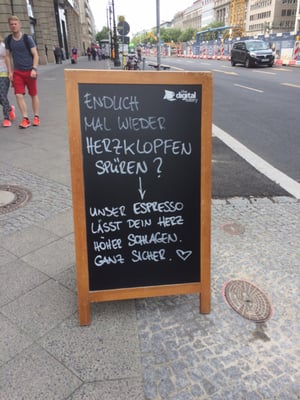 digital
ENDLICH
MAL WIEDER
HERZKLOPFEN
SPÜREN?
UNSER ESPRESSO
LÄSST DEIN HERZ
HÖHER SCHLAGEN.
GANZ SICHER.